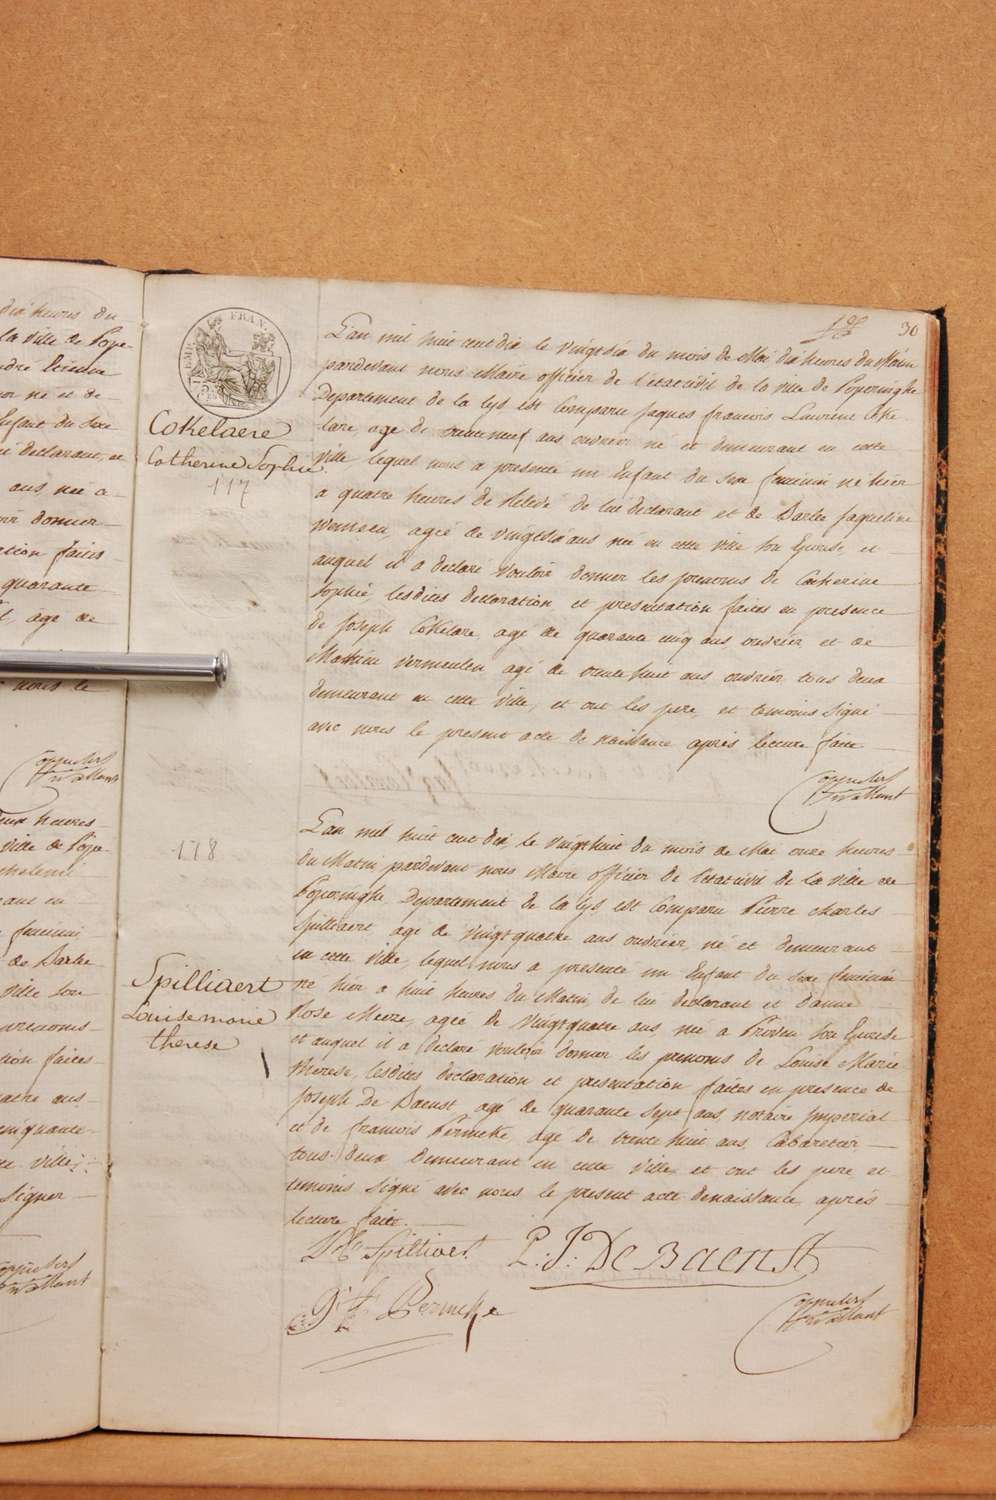 dix heures du
la Ville de Pope-
né et de
Enfant du Sexe
declarant, et
ans, née a
donner
faites
quarante
age de
nous le
heures
Ville de Pope-
feminin
de Barbe
Ville Son
prenoms
faites
ans
cinquante
Ville
Signer
30
EMP. FRAN.
Cokelaere
Catherine Sophie
117
L'an mil huit cent dix le vingtsix du mois de Mai dix heures du Matin
pardevant nous Maire officier de l'etat civil de la ville de Poperinghe
Departement de la Lys est Comparu Jaques francois Laurent Coke
lare, age de trenteneuf ans ouvrier né et demeurant en cette
Ville lequel nous a presente un Enfant du sexe feminin né hier
a quatre heures de Relevé de lui declarant et de Barbe Jaqueline
agée de vingtsix ans née en cette ville Son Epouse et
auquel il a declaré vouloir donner les prenoms de Catherine
Sophie, lesdites declaration et presentation faites en presence
de Joseph Cokelare, agé de quarante cinq ans, ouvrier et de
Mathieu Vermeulen agé de trente huit ans ouvrier tous deux
demeurant en cette Ville, et ont les pere et temoins Signé
avec nous le present acte de naissance après lecture faite
118
Spilliaert
Louise marie
therese
L'an mil huit cent dix le vingthuit du mois de Mai onze heures
du Matin pardevant nous Maire officier de l'etat civil de la Ville de
Poperinghe Departement de la Lys est Comparu Pierre Charles
Spilliaert age de vingtquatre ans ouvrier né et demeurant
en cette Ville lequel nous a presenté un Enfant du sexe feminin
né hier a huit heures du Matin de lui declarant et d'anne
Rose Meeze, agée de vingtquatre ans, née a Proven Son Epouse
et auquel il a declaré vouloir donner les prenoms de Louise Marie
therese, lesdites declaration et presentation faites en presence de
Joseph De Baenst, agé de quarante Sept ans, notaire Imperial
et de francois Permeke, agé de trente huit ans Cabaretier
tous deux demeurant en cette Ville et ont les pere et
temoins Signé avec nous le present acte de naissance après
lecture faite.
Spilliaert P. J. De Baenst
Permeke